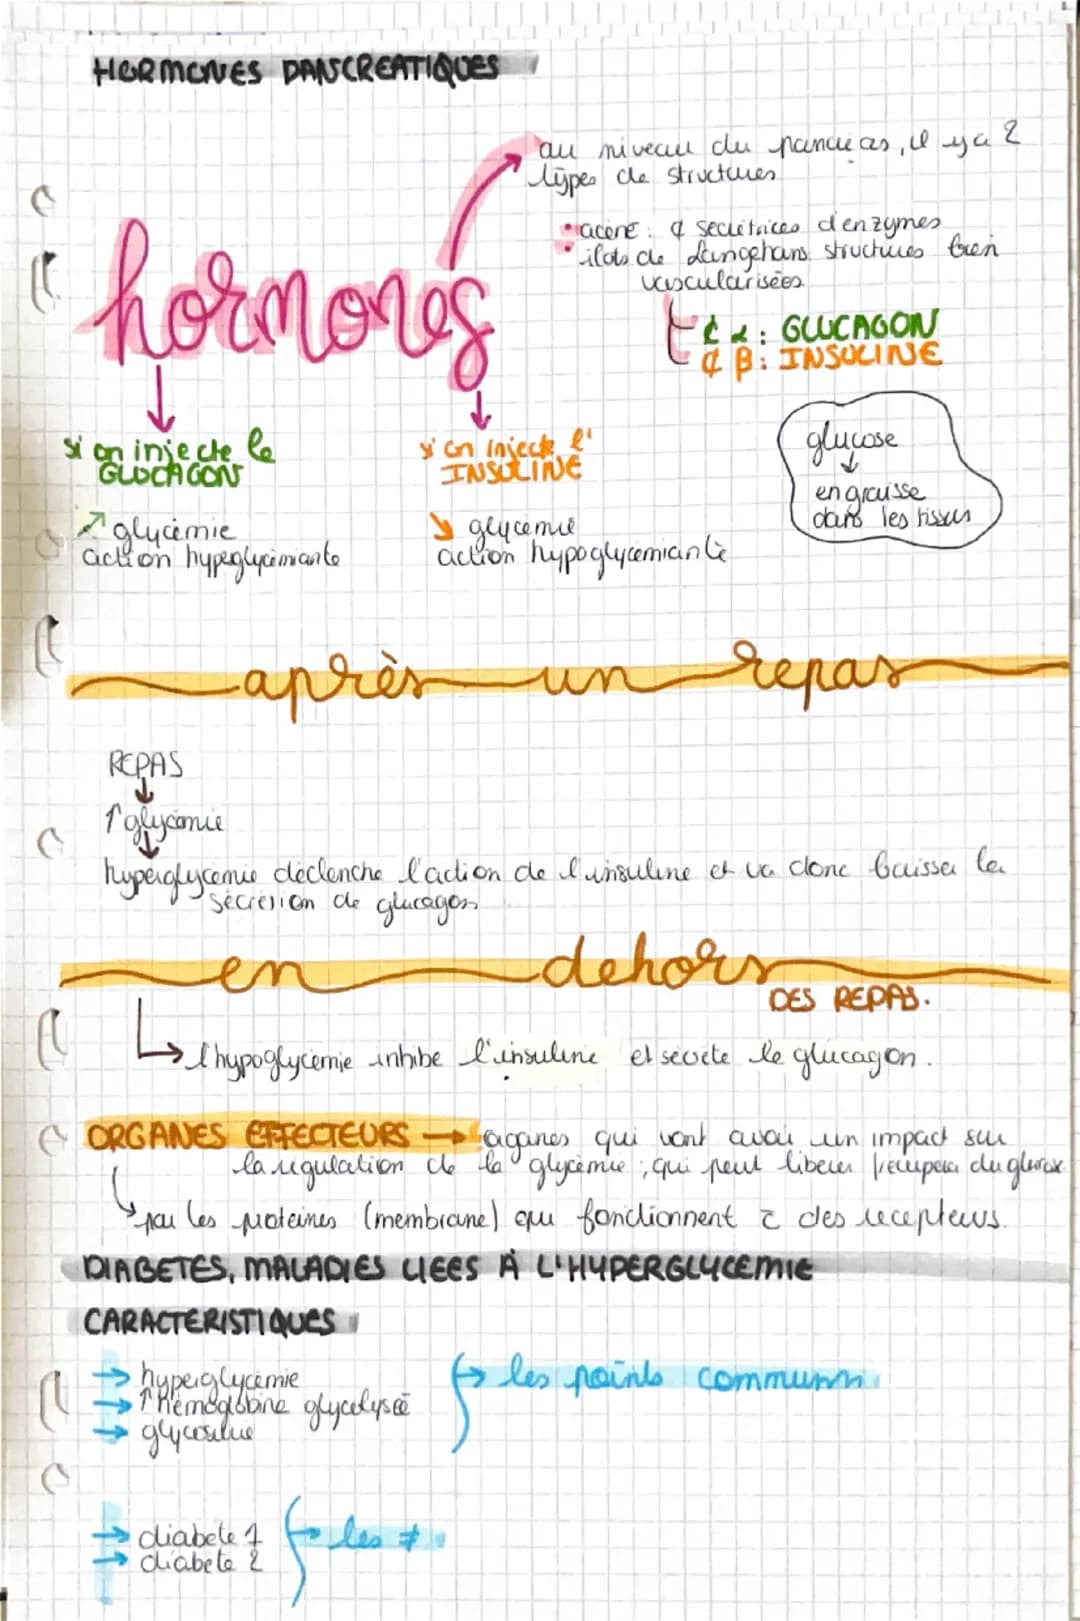 HORMONES PANCREATIQUES
au niveau du pancréas, il y a 2
types de structures
• acène : ȼ sécrétrices d'enzymes
• ilots de Langehans structures bien
vascularisées
hormones
ȼ α : GLUCAGON
ȼ β : INSULINE
si on injecte le
GLUCAGON
↗ glycémie
action hypeglycémiante
si on injecte l'
INSULINE
↘ glycémie
action hypoglycémiante
glucose
↓
en graisse
dans les tissus
après un repas
REPAS
↓
↑ glycémie
↓
hyperglycémie déclenche l'action de l'insuline et va donc baisser la
sécrétion de glucagon
en dehors
DES REPAS.
↳ l'hypoglycémie inhibe l'insuline et sécrète le glucagon.
ORGANES EFFECTEURS → organes qui vont avoir un impact sur
la régulation de la glycémie ; qui peut libérer / récupérer du glucose
↳ par les protéines (membrane) qui fonctionnent c̄ des récepteurs.
DIABETES, MALADIES LIEES À L'HYPERGLYCEMIE
CARACTERISTIQUES
→ hyperglycémie
→ ↑ hémoglobine glycolysée
→ glycosurie
→ les points communs
→ diabète 1
→ diabète 2
→ les ≠